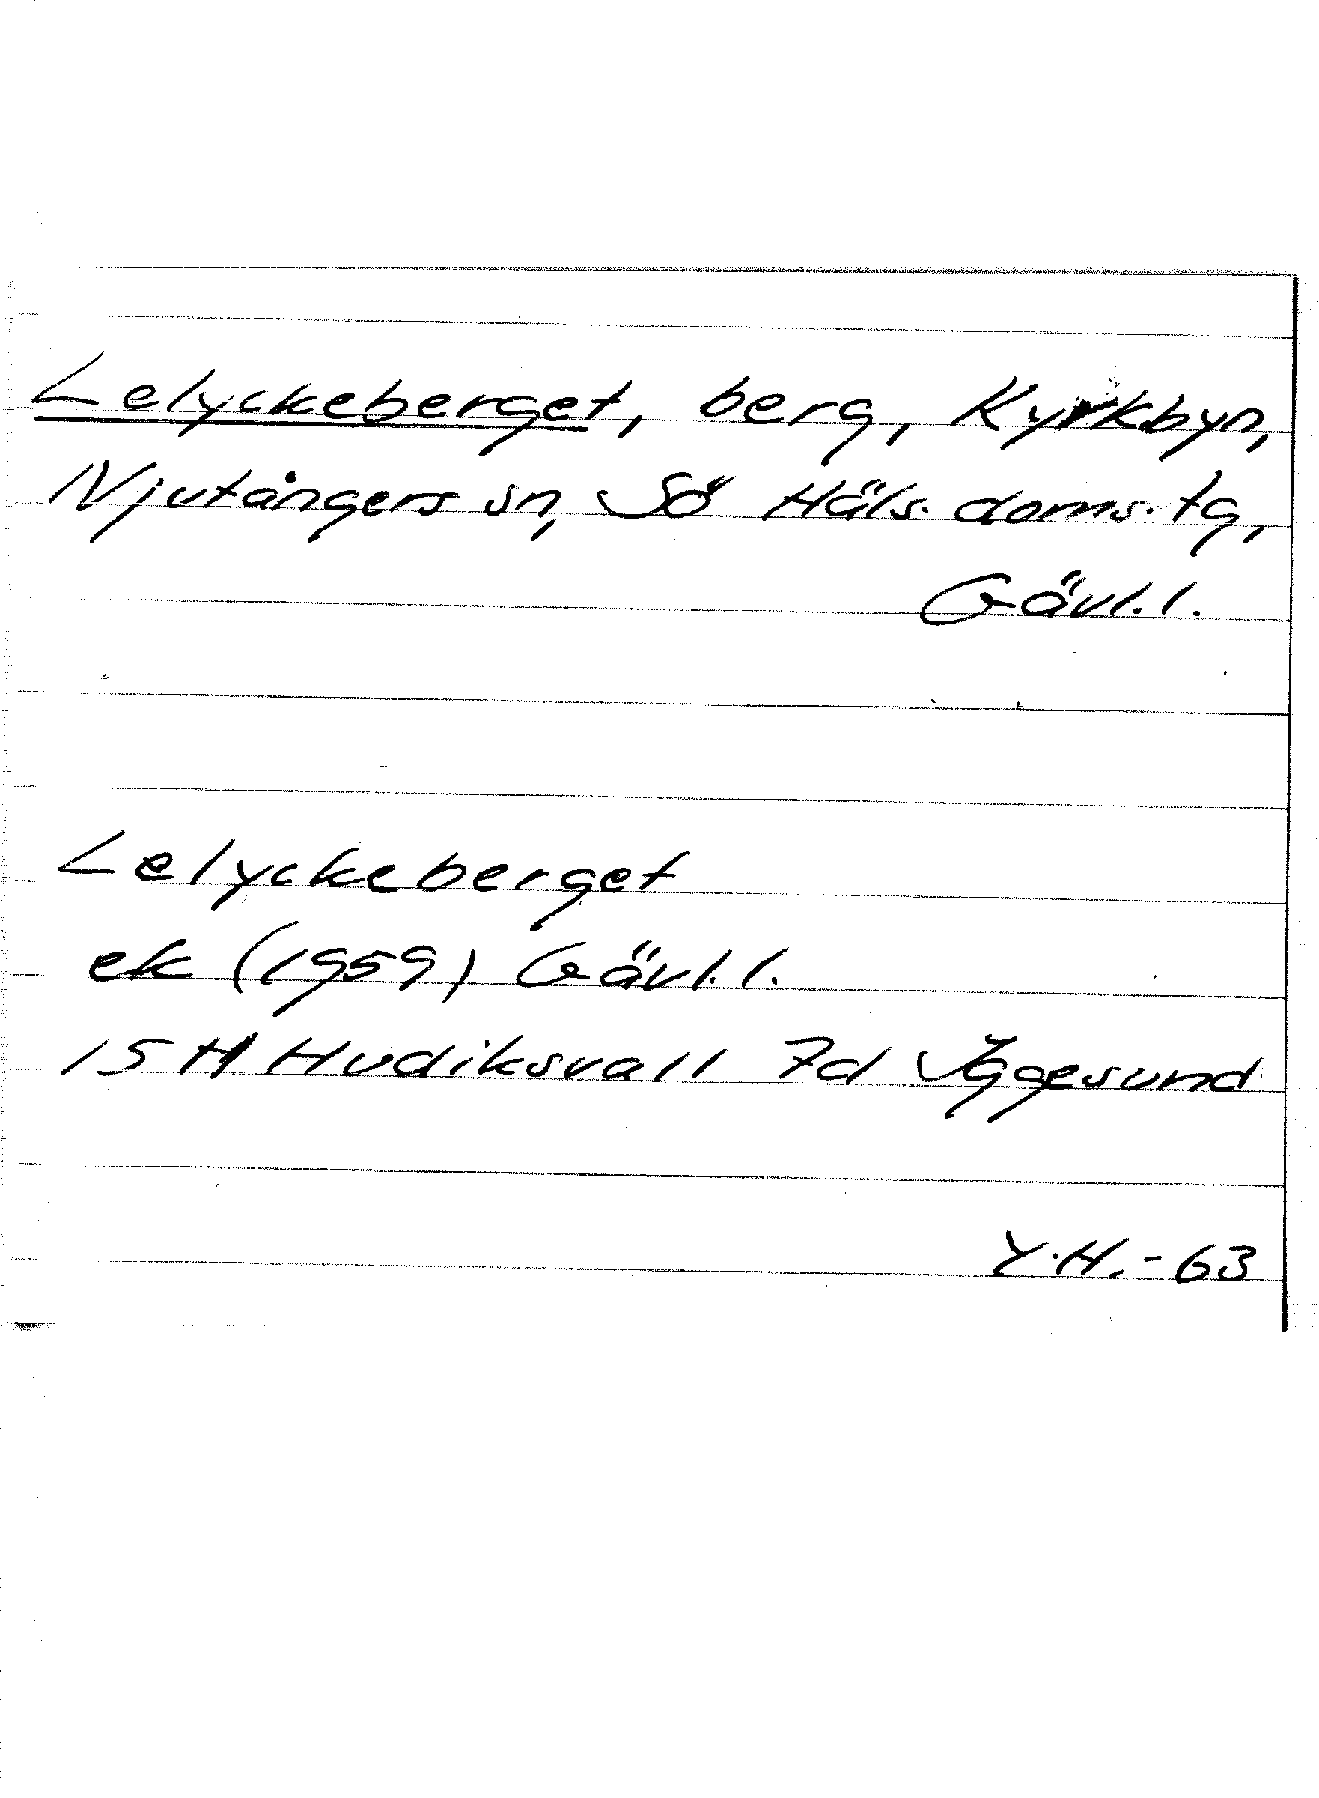 Lelyckeberget, berg, Kyrkbyn,
Njutångers sn, Sö Häls. doms. tg,
Gävl. l.
Lelyckeberget
ek (1959) Gävl. l.
15 H Hudiksvall 7d Iggesund
Y.H. - 63